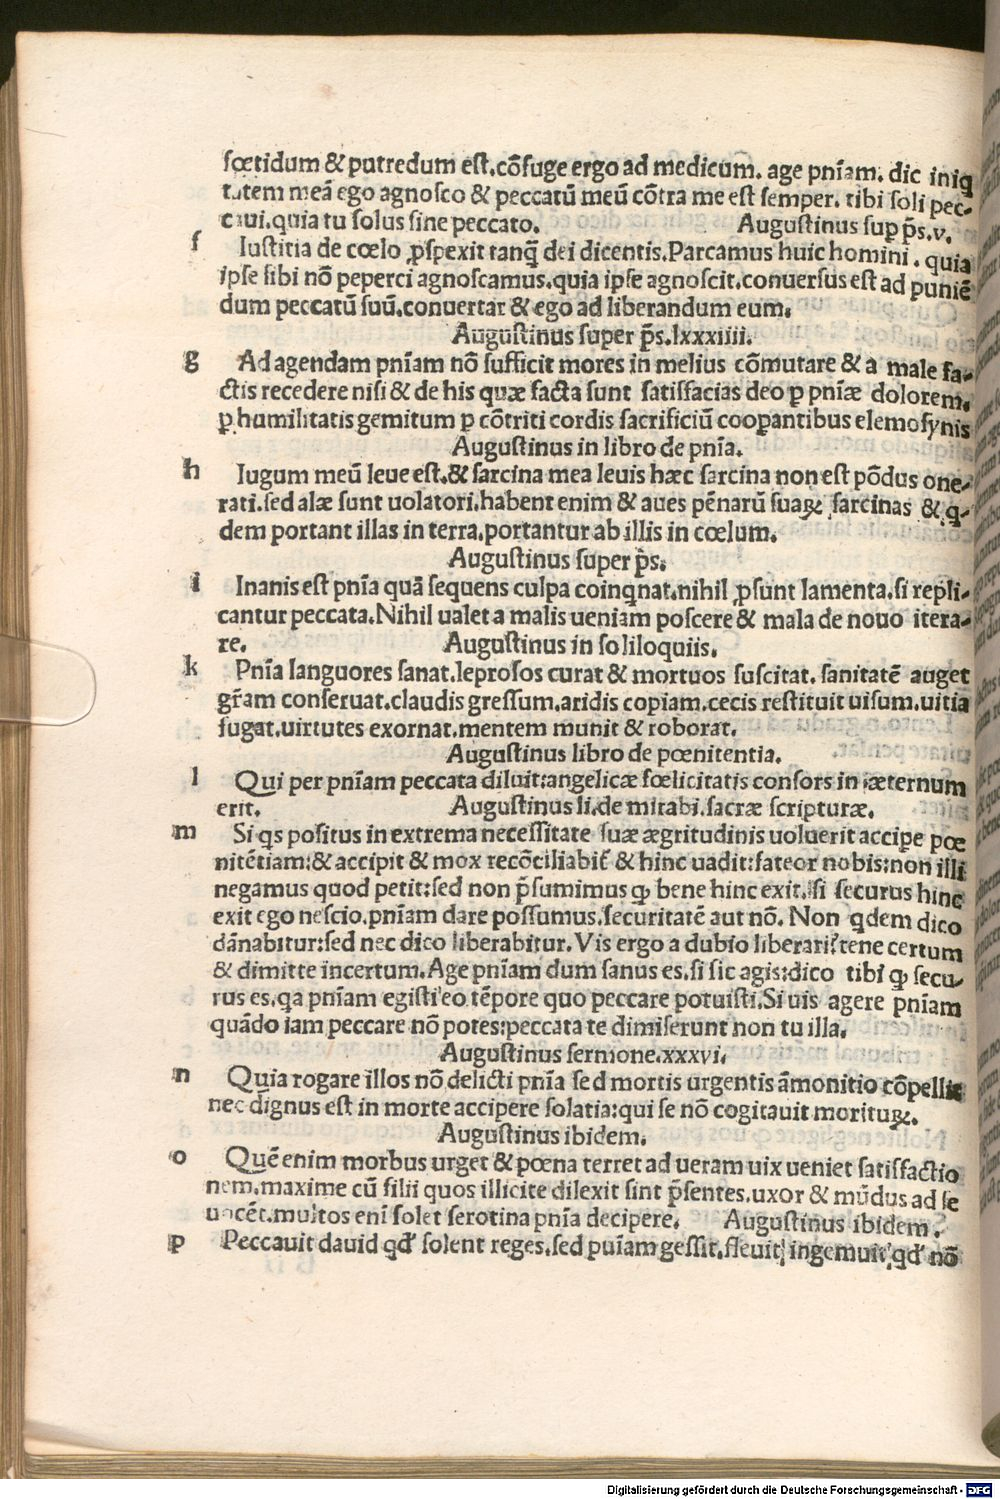 fœtidum & putredum est, cõfuge ergo ad medicum. age pnĩam. dic iniq
tatem meã ego agnosco & peccatũ meũ cõtra me est semper. tibi soli pec-
caui. quia tu solus sine peccato. Augustinus sup p̃s. v.
f Iustitia de cœlo ꝓspexit tanq̃ dei dicentis. Parcamus huic homini. quia
ipse sibi nõ peperci agnoscamus. quia ipse agnoscit. conuersus est ad puniẽ
dum peccatũ suũ. conuertar & ego ad liberandum eum.
Augustinus super p̃s. lxxxiiii.
g Ad agendam pnĩam nõ sufficit mores in melius cõmutare & a male fa-
ctis recedere nisi & de his quæ facta sunt satisfacias deo ꝑ pnĩæ dolorem.
ꝑ humilitatis gemitum ꝑ cõtriti cordis sacrificiũ cooꝑantibus elemosynis
Augustinus in libro de pnĩa.
h Iugum meũ leue est. & sarcina mea leuis hæc sarcina non est põdus one-
rati. sed alæ sunt uolatori. habent enim & aues pẽnarũ suaꝝ sarcinas & q-
dem portant illas in terra. portantur ab illis in cœlum.
Augustinus super p̃s.
i Inanis est pnĩa quã sequens culpa coinqnat. nihil ꝓsunt lamenta. si repli-
cantur peccata. Nihil ualet a malis ueniam poscere & mala de nouo itera-
re. Augustinus in soliloquiis.
k Pnĩa languores sanat. leprosos curat & mortuos suscitat. sanitatẽ auget
gr̃am conseruat. claudis gressum. aridis copiam. cecis restituit uisum. uitia
fugat. uirtutes exornat. mentem munit & roborat.
Augustinus libro de pœnitentia.
l Qui per pnĩam peccata diluit: angelicæ fœlicitatis consors in æternum
erit. Augustinus li. de mirabi. sacræ scripturæ.
m Si qs positus in extrema necessitate suæ ægritudinis uoluerit acciꝑe pœ
nitẽtiam: & accipit & mox recõciliabit̃ & hinc uadit: fateor nobis: non illi
negamus quod petit: sed non p̃sumimus ꝙ bene hinc exit. si securus hinc
exit ego nescio. pnĩam dare possumus. securitatẽ aut nõ. Non qdem dico
dãnabitur: sed nec dico liberabitur. Vis ergo a dubio liberari? tene certum
& dimitte incertum. Age pnĩam dum sanus es. si sic agis: dico tibi ꝙ secu-
rus es. qa pnĩam egisti eo tẽpore quo peccare potuisti. Si uis agere pnĩam
quãdo iam peccare nõ potes: peccata te dimiserunt non tu illa.
Augustinus sermone. xxxvi.
n Quia rogare illos nõ delicti pnĩa sed mortis urgentis ãmonitio cõpellit
nec dignus est in morte accipere solatia: qui se nõ cogitauit morituꝝ.
Augustinus ibidem.
o Quẽ enim morbus urget & pœna terret ad ueram uix ueniet satisfactio
nem. maxime cũ filii quos illicite dilexit sint p̃sentes. uxor & mũdus ad se
uocẽt. multos eni solet serotina pnĩa decipere. Augustinus ibidem.
p Peccauit dauid qd̃ solent reges. sed pnĩam gessit. fleuit, ingemuit, qd̃ nõ
Digitalisierung gefördert durch die Deutsche Forschungsgemeinschaft - DFG